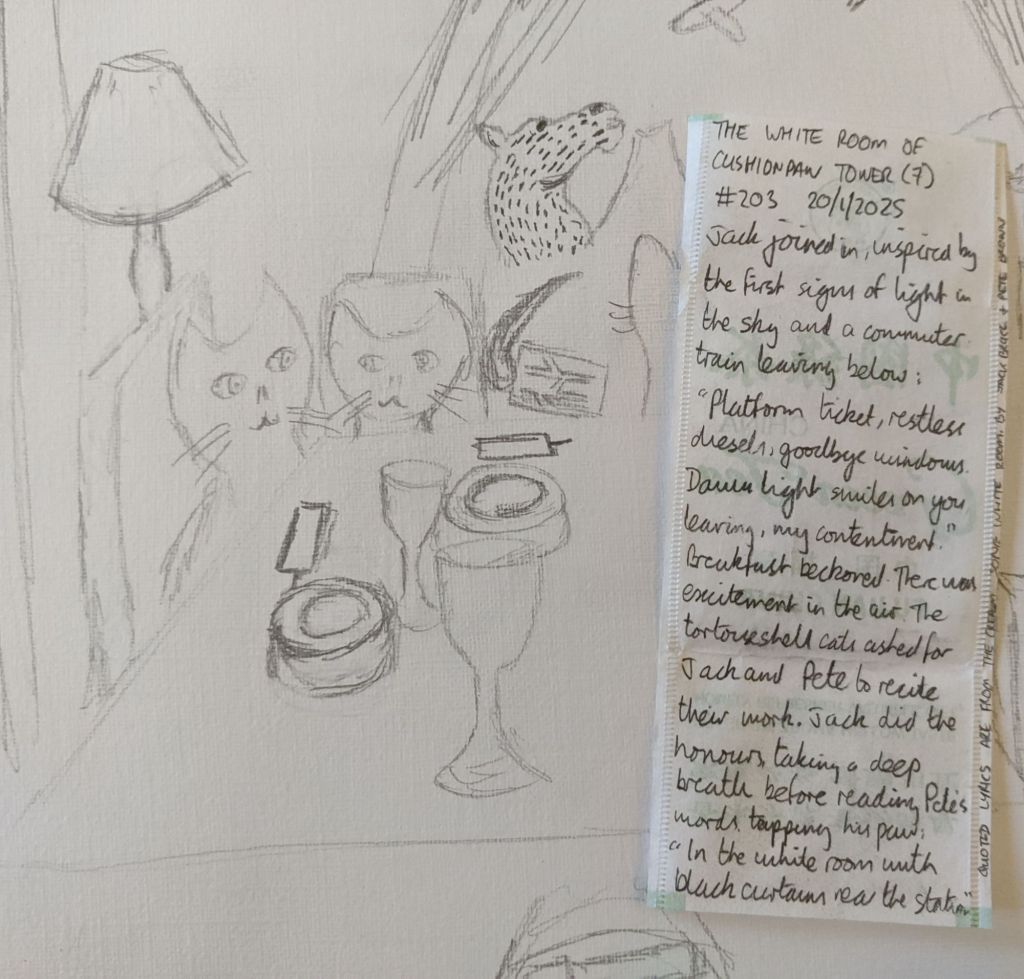 THE WHITE ROOM OF
CUSHIONPAW TOWER (7)
#203 20/1/2025
Jack joined in, inspired by
the first signs of light in
the sky and a commuter
train leaving below:
"Platform ticket, restless
diesels, goodbye windows.
Dawn light smiles on you
leaving, my contentment."
Breakfast beckoned. There was
excitement in the air. The
tortoiseshell cats asked for
Jack and Pete to recite
their work. Jack did the
honours, taking a deep
breath before reading Pete's
words, tapping his paw:
"In the white room with
black curtains near the station"
QUOTED LYRICS ARE FROM THE CREAM SONG WHITE ROOM BY JACK BRUCE + PETE BROWN
CHINA